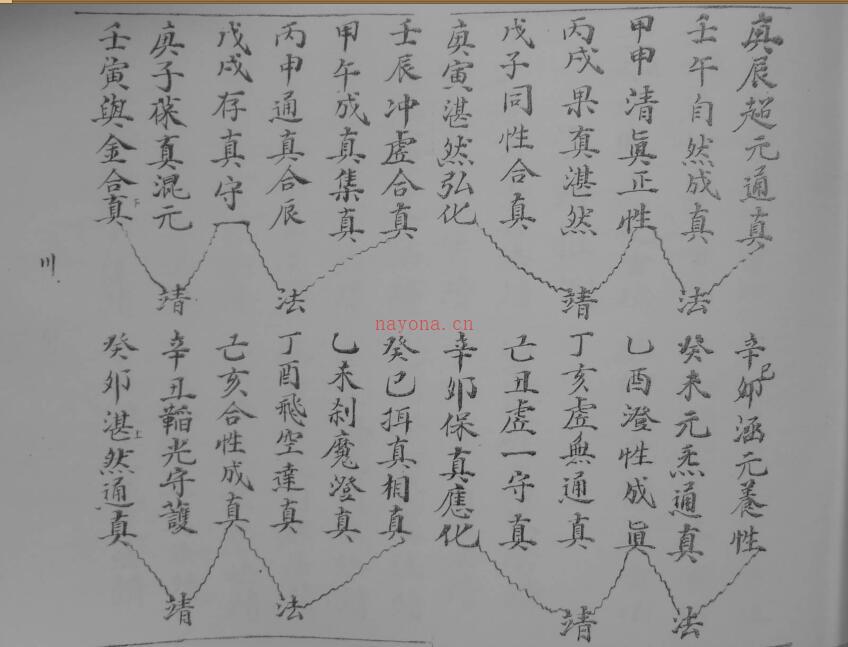 庚辰超元通真
壬午自然成真
甲申清眞正性
丙戌果真湛然
戊子同性合真
庚寅湛然弘化
壬辰冲虛合真
甲午成真集真
丙申通真合辰
戊戌存真守一
庚子葆真混元
壬寅與金合真
下
法
靖
法
靖
川
辛卯涵元養性
巳
癸未元炁通真
乙酉澄性成眞
丁亥虛無通真
己丑虛一守真
辛卯保真應化
癸巳拜真相真
乙未剎魔澄真
丁酉飛空達真
己亥合性成真
辛丑韜光守護
癸卯湛然通真
上
法
靖
法
靖
nayona.cn